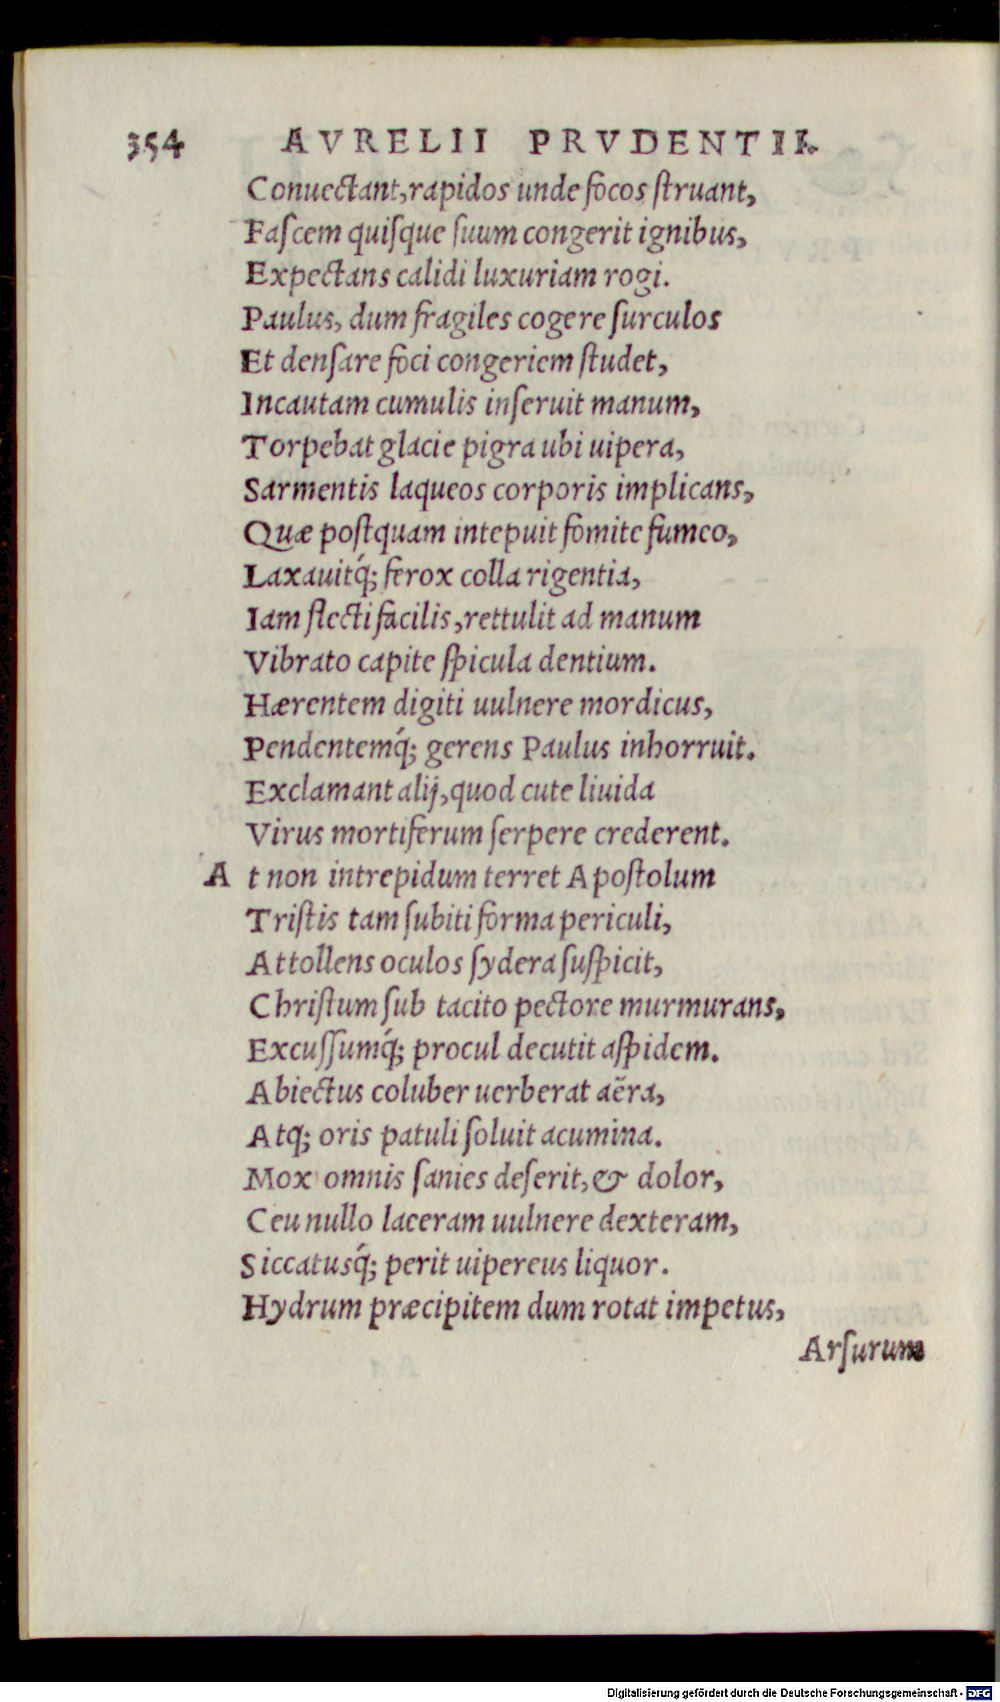 354 AVRELII PRVDENTII.
Conuectant, rapidos unde focos ſtruant,
Faſcem quiſque ſuum congerit ignibus,
Expectans calidi luxuriam rogi.
Paulus, dum fragiles cogere ſurculos
Et denſare foci congeriem ſtudet,
Incautam cumulis inſeruit manum,
Torpebat glacie pigra ubi uipera,
Sarmentis laqueos corporis implicans,
Quæ poſtquam intepuit fomite fumeo,
Laxauitq́; ferox colla rigentia,
Iam flecti facilis, rettulit ad manum
Vibrato capite ſpicula dentium.
Hærentem digiti uulnere mordicus,
Pendentemq́; gerens Paulus inhorruit.
Exclamant alij, quod cute liuida
Virus mortiferum ſerpere crederent.
A t non intrepidum terret Apoſtolum
Triſtis tam ſubiti forma periculi,
Attollens oculos ſydera ſuſpicit,
Chriſtum ſub tacito pectore murmurans,
Excuſſumq́; procul decutit aſpidem.
Abiectus coluber uerberat aëra,
Atq; oris patuli ſoluit acumina.
Mox omnis ſanies deſerit, & dolor,
Ceu nullo laceram uulnere dexteram,
Siccatusq́; perit uipereus liquor.
Hydrum præcipitem dum rotat impetus,
Arſurum
Digitalisierung gefördert durch die Deutsche Forschungsgemeinschaft - DFG